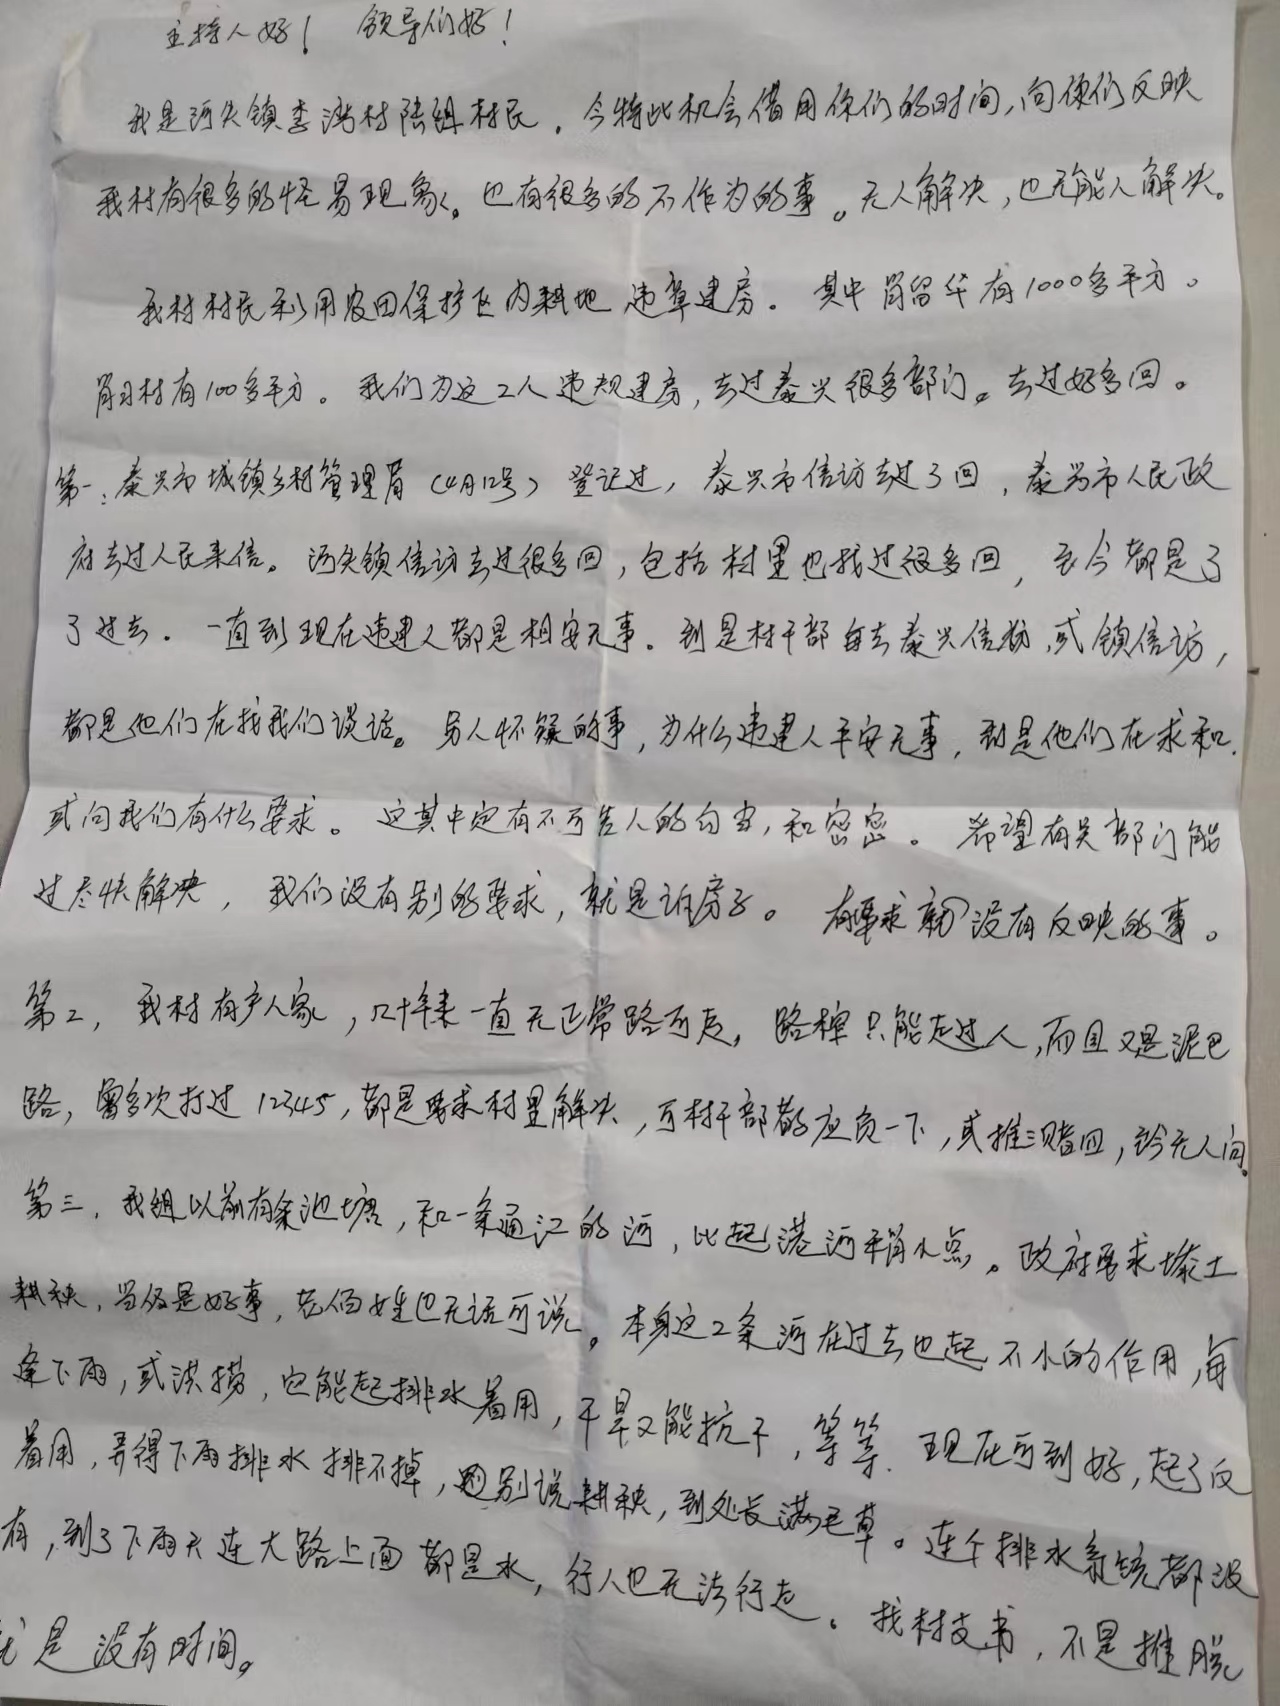 主持人好！ 领导们好！
我是河失镇李湾村陆组村民。今特此机会借用你们的时间，向你们反映
我村有很多的怪易现象。也有很多的不作为的事。无人解决，也无能人解决。
我村村民利用农田保护区内耕地违章建房。其中肖留华有1000多平方。
肖习村有100多平方。我们为这2人违规建房，去过泰兴很多部门。去过好多回。
第一：泰兴市城镇乡村管理局（4月12号）登记过，泰兴市信访去过3回，泰兴市人民政
府去过人民来信。河失镇信访去过很多回，包括村里也找过很多回，至今都是了
了过去。一直到现在违建人都是相安无事。到是村干部每去泰兴信访，或镇信访，
都是他们在找我们谈话。另人怀疑的事，为什么违建人平安无事，到是他们在求和.
或问我们有什么要求。这其中定有不可告人的勾当，和密密。希望有关部门能
过尽快解决，我们没有别的要求，就是拆房子。有要求就没有反映的事。
第2，我村有户人家，几十年来一直无正常路可走，路榨只能走过人，而且又是泥巴
路，曾多次打过12345，都是要求村里解决，可村干部都应负一下，或推三赌四，至今无人问。
第三，我组以前有条池塘，和一条通江的河，比起港河稍小点。政府要求填土
耕秧，当仅是好事，老佰姓也无话可说。本身这2条河在过去也起不小的作用，每
逢下雨，或洪捞，它能起排水着用，干旱又能抗干，等等.现在可到好，起了反
着用，弄得下雨排水排不掉，别说耕秧，到处长满毛草。连个排水系统都没
有，到了下雨天连大路上面都是水，行人也无法行走。找村支书，不是推脱
就是没有时间。